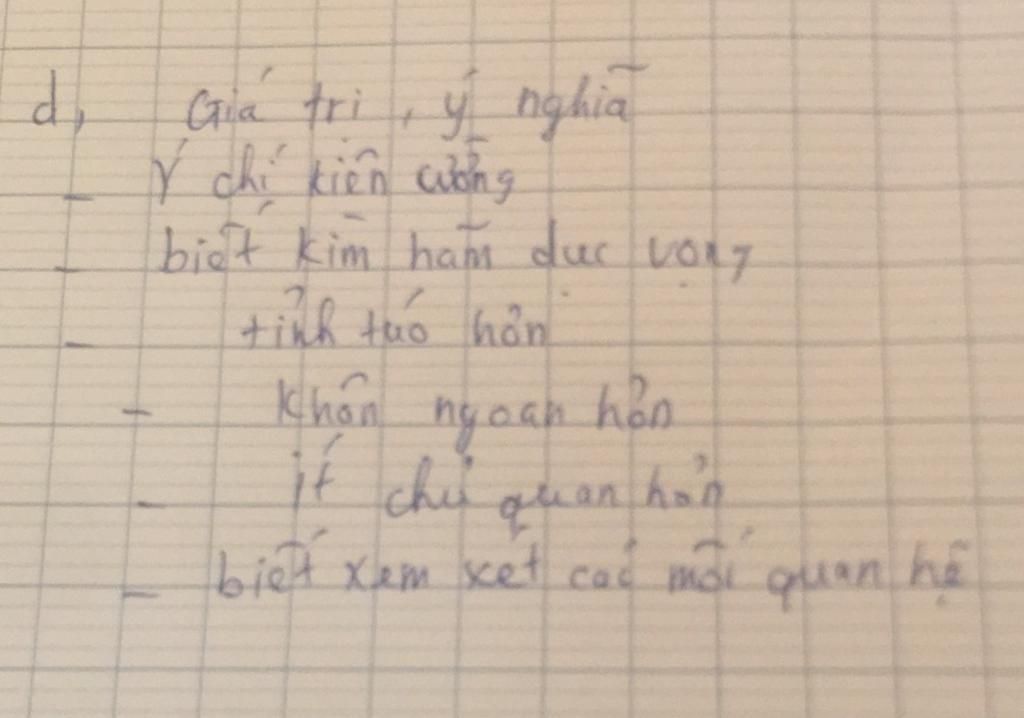 d, Giá trị, ý nghĩa
- Ý chí kiên cường
- biết kìm hãm dục vọng
- tỉnh táo hơn
- Khôn ngoan hơn
- ít chủ quan hơn
- biết xem xét các mối quan hệ